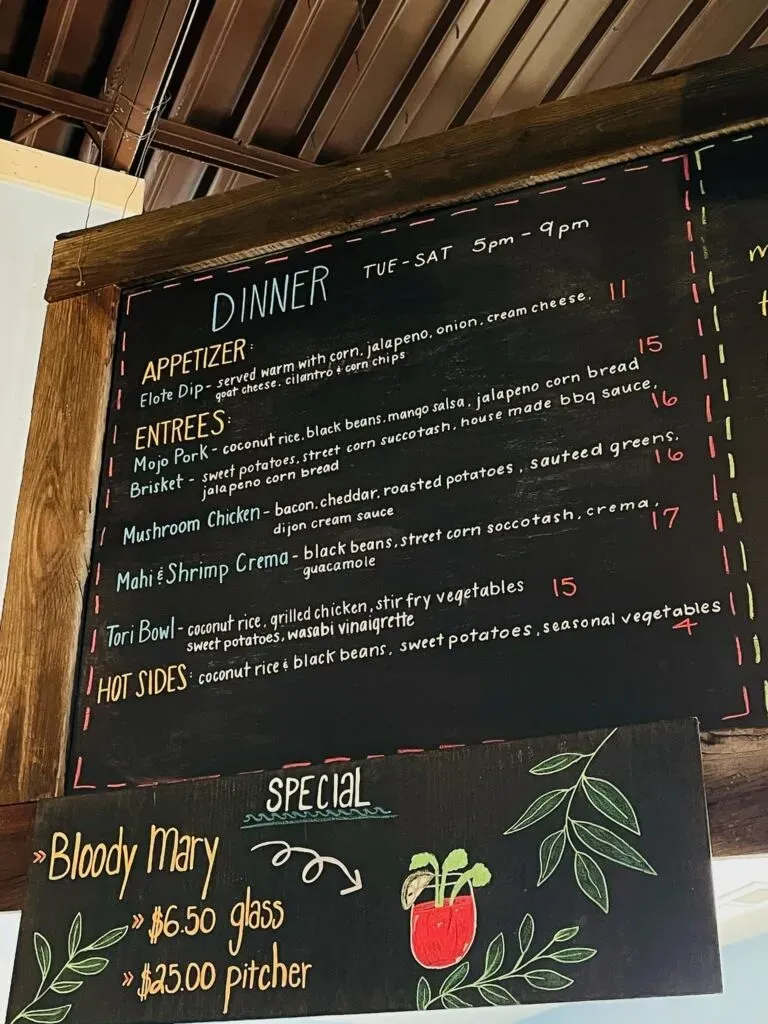 DINNER TUE-SAT 5pm-9pm
APPETIZER:
Elote Dip - served warm with corn, jalapeno, onion, cream cheese, 11
goat cheese, cilantro & corn chips
ENTREES:
Mojo Pork - coconut rice, black beans, mango salsa, jalapeno corn bread 15
Brisket - sweet potatoes, street corn succotash, house made bbq sauce, 16
jalapeno corn bread
Mushroom Chicken - bacon, cheddar, roasted potatoes, sauteed greens, 16
dijon cream sauce
Mahi & Shrimp Crema - black beans, street corn soccotash, crema, 17
guacamole
Tori Bowl - coconut rice, grilled chicken, stir fry vegetables 15
sweet potatoes, wasabi vinaigrette
HOT SIDES: coconut rice & black beans, sweet potatoes, seasonal vegetables
4
SPECIAL
»Bloody Mary
»$6.50 glass
»$25.00 pitcher